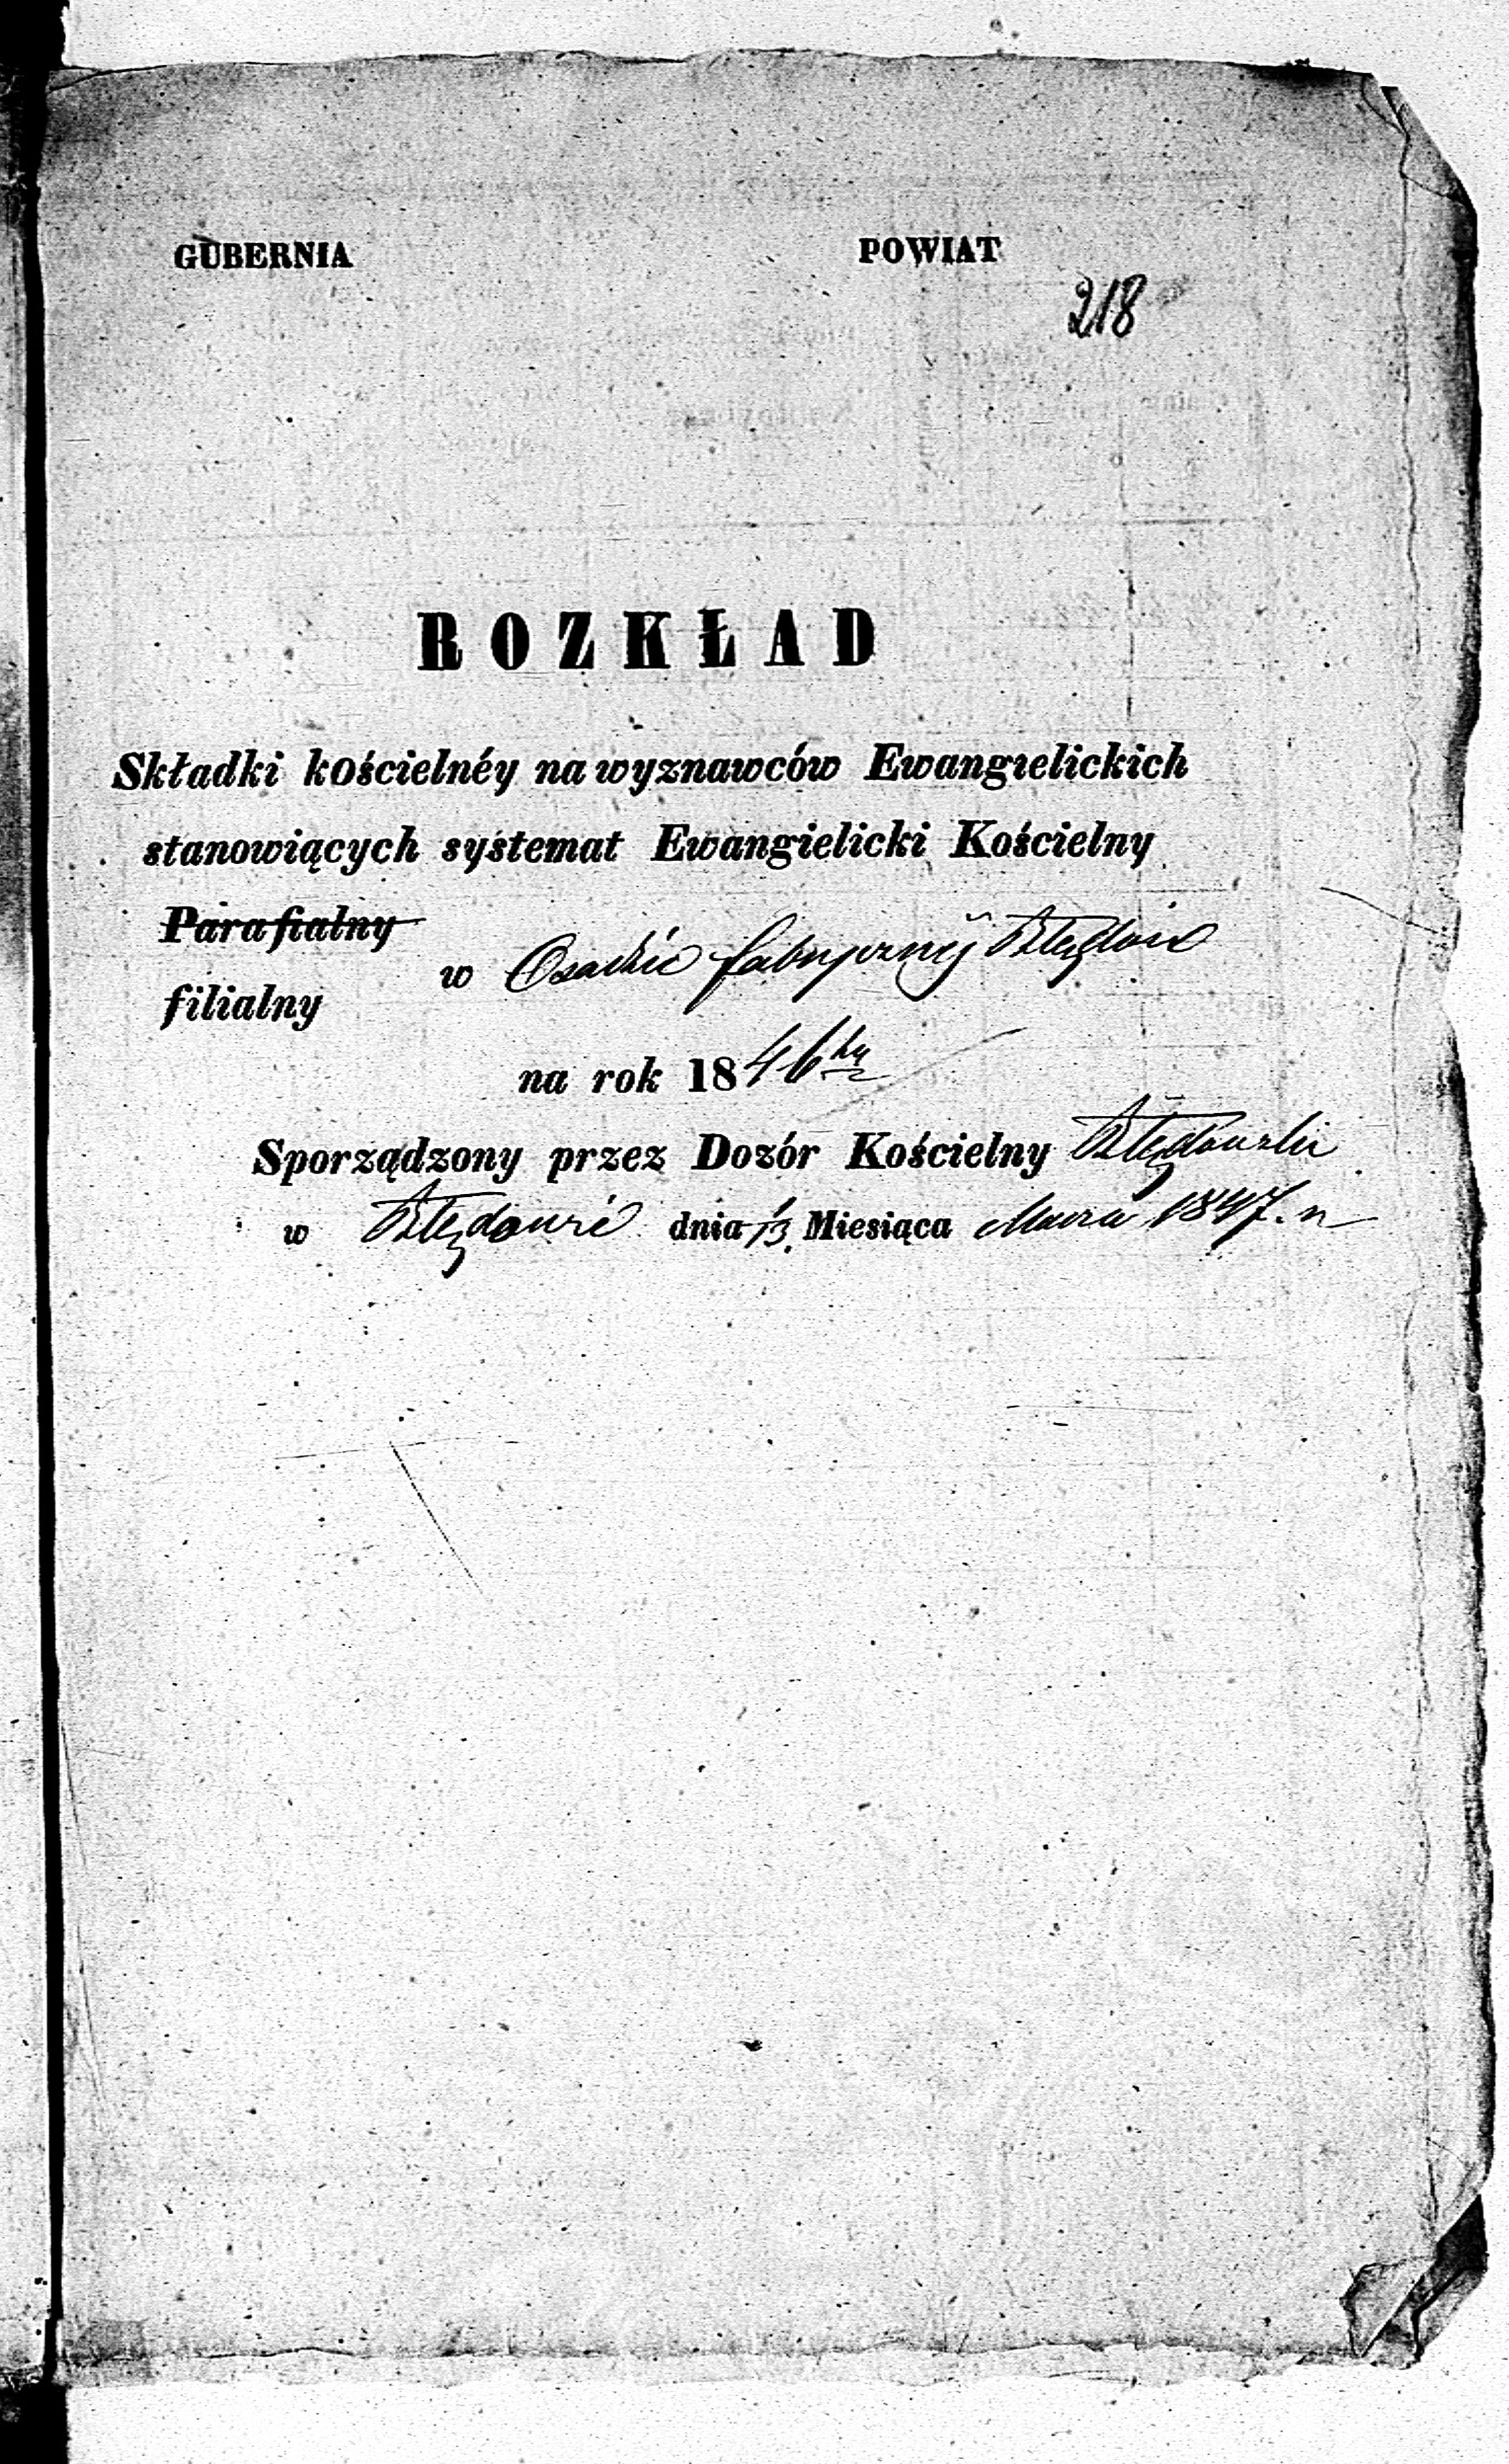 GUBERNIA POWIAT
218
ROZKŁAD
Składki kościelnéy na wyznawców Ewangielickich
stanowiących systemat Ewangielicki Kościelny
Parafialny
w Osadzie fabrycznéj
filialny
na rok 1846
Sporządzony przez Dozór Kościelny
w dnia 1/13 Miesiąca Marca 1847. r